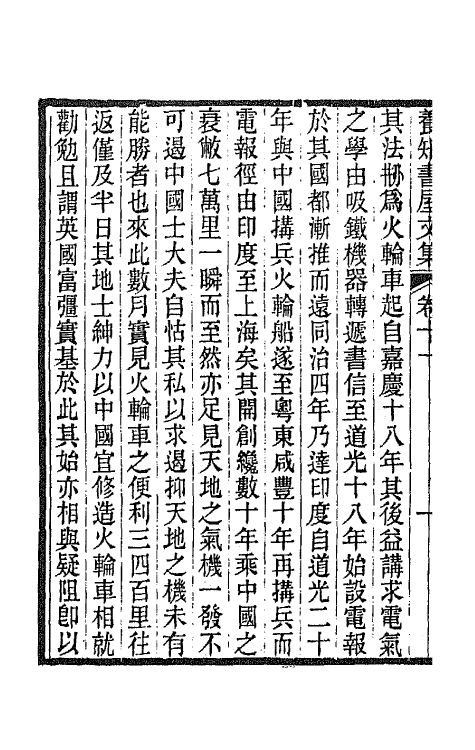 養知書屋文集 卷十一 一
其法刱爲火輪車起自嘉慶十八年其後益講求電氣
之學由吸鐵機器轉遞書信至道光十八年始設電報
於其國都漸推而遠同治四年乃達印度自道光二十
年與中國搆兵火輪船遂至粵東咸豐十年再搆兵而
電報徑由印度至上海矣其開創纔數十年乘中國之
衰敝七萬里一瞬而至然亦足見天地之氣機一發不
可遏中國士大夫自怙其私以求遏抑天地之機未有
能勝者也來此數月實見火輪車之便利三四百里往
返僅及半日其地士紳力以中國宜修造火輪車相就
勸勉且謂英國富彊實基於此其始亦相與疑阻卽以